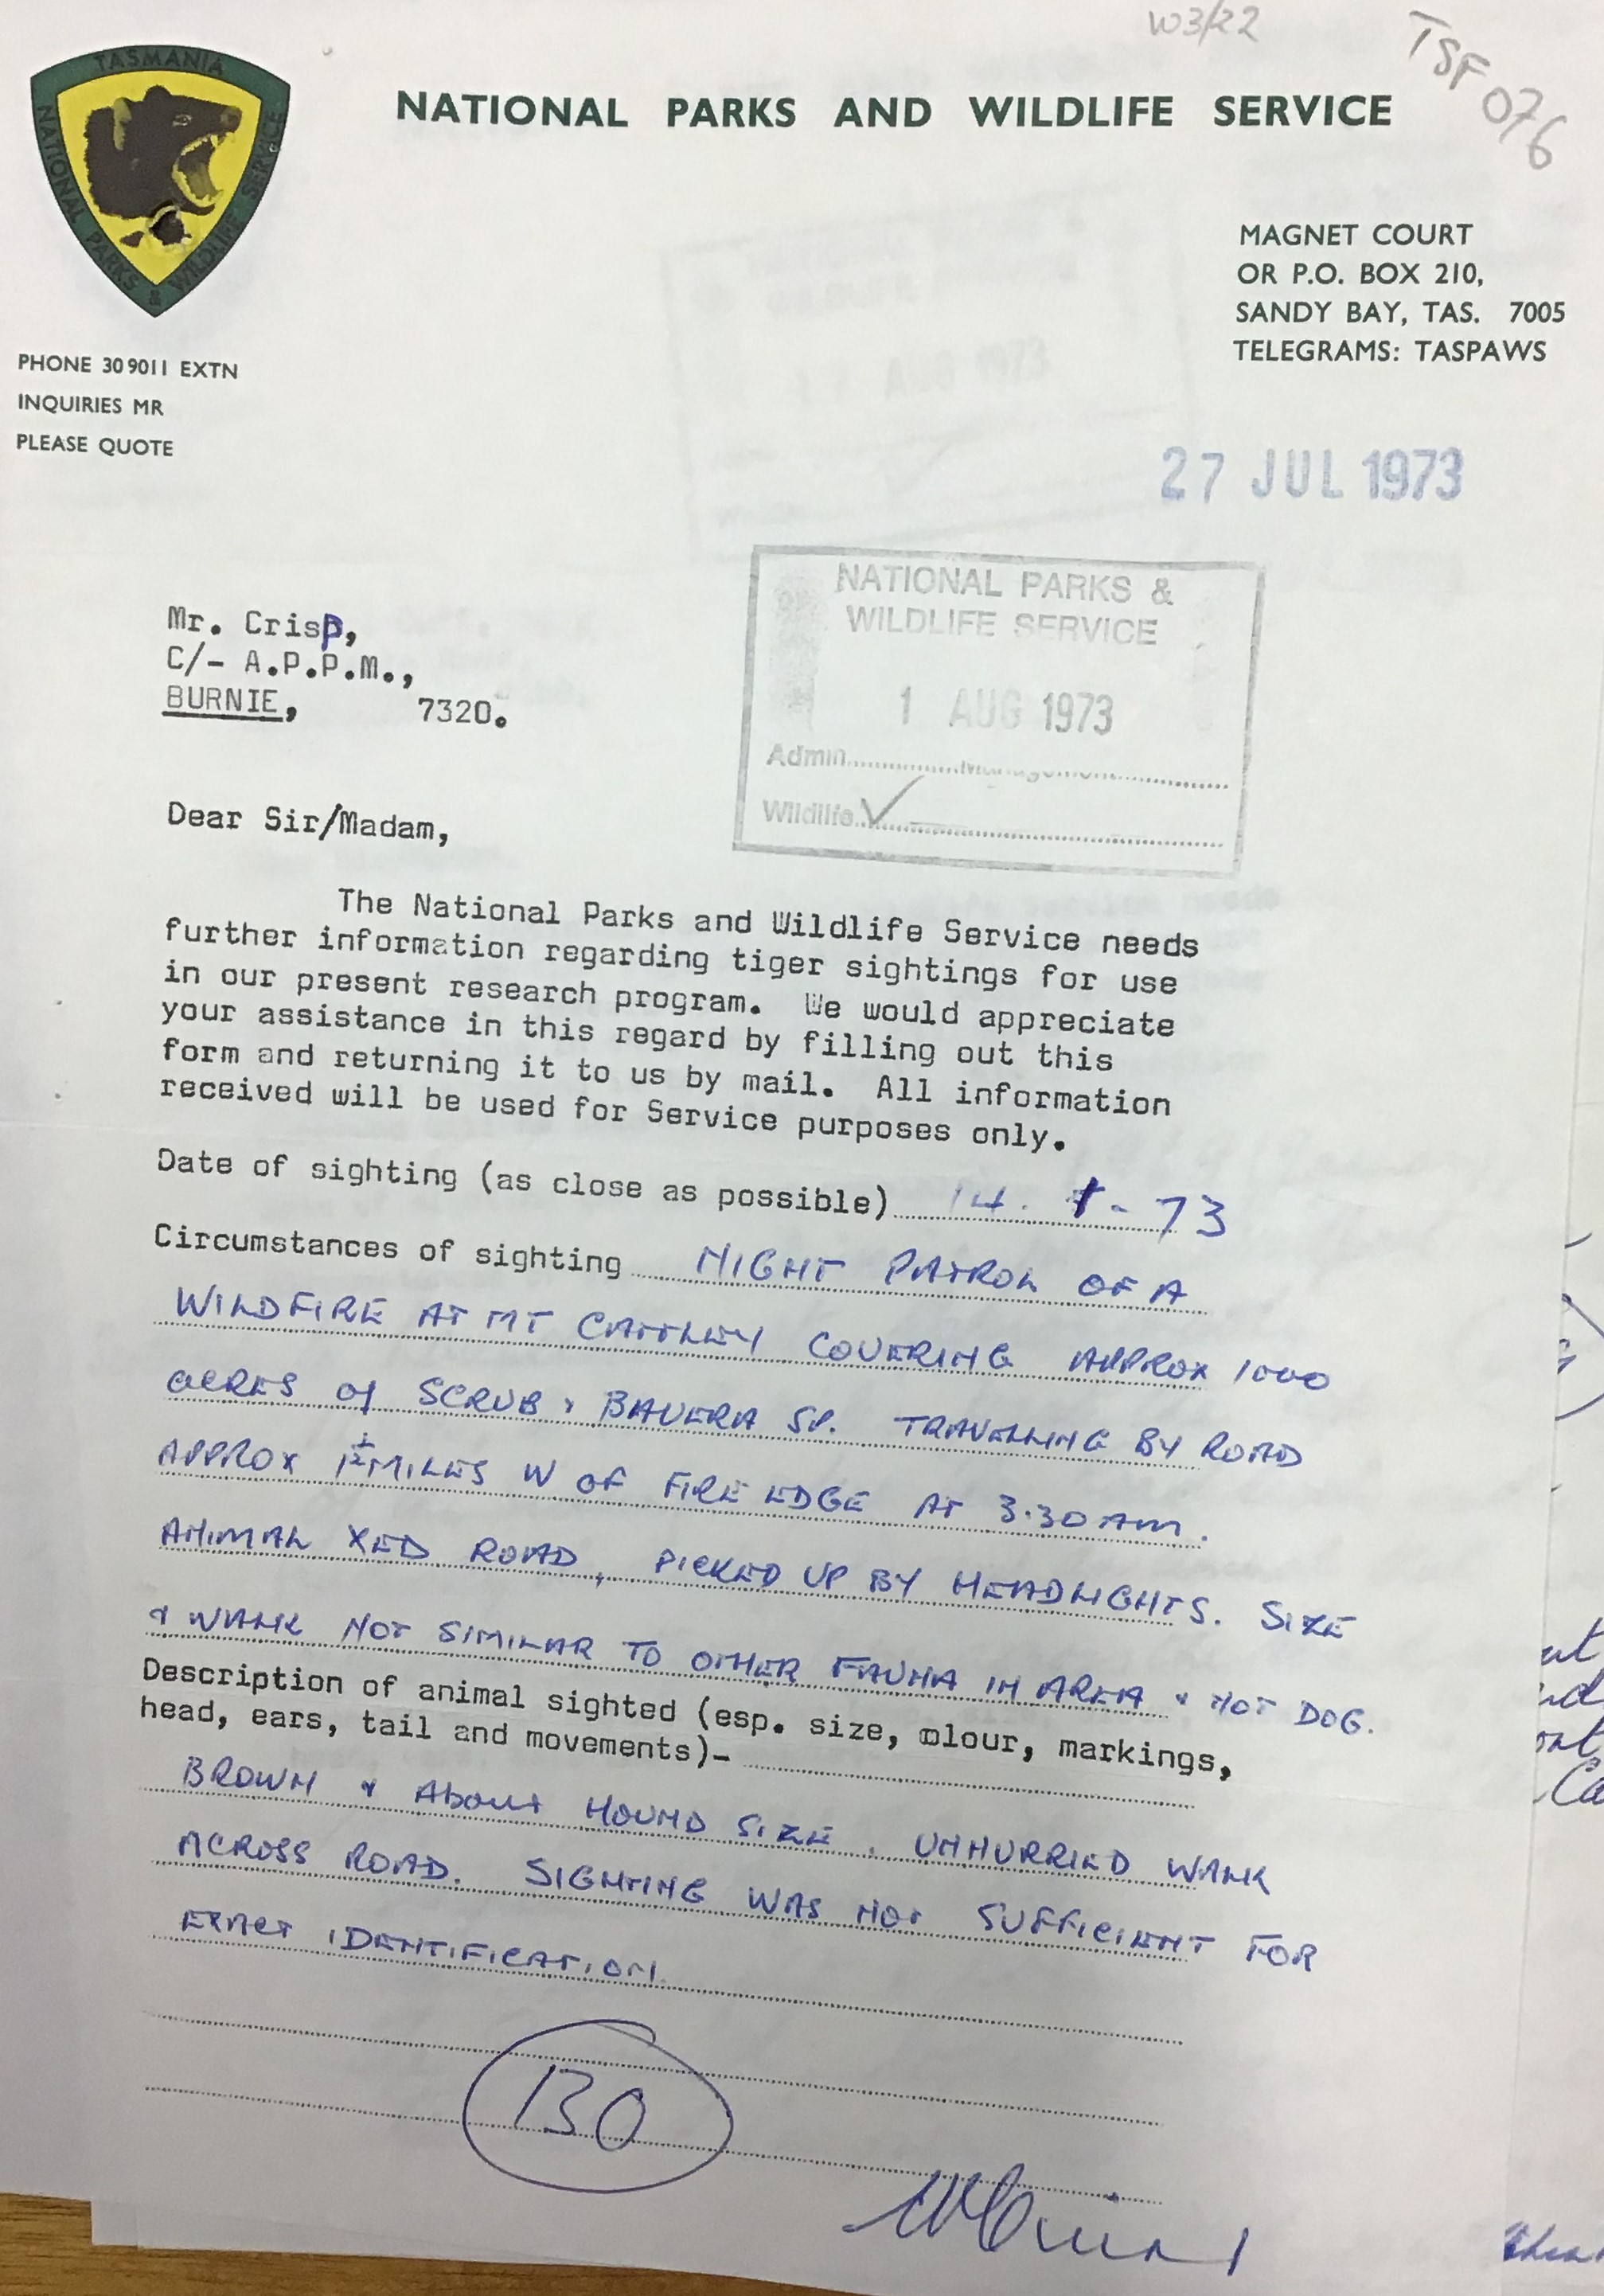 W3/22
TSF 076
TASMANIA
NATIONAL PARKS & WILDLIFE SERVICE
NATIONAL PARKS AND WILDLIFE SERVICE
MAGNET COURT
OR P.O. BOX 210,
SANDY BAY, TAS. 7005
TELEGRAMS: TASPAWS
PHONE 30 9011 EXTN
INQUIRIES MR
PLEASE QUOTE
AUG 1973
27 JUL 1973
NATIONAL PARKS &
WILDLIFE SERVICE
1 AUG 1973
Admin..............Management..............
Wildlife..✓
Mr. Crisp,
C/- A.P.P.M.,
BURNIE, 7320.
Dear Sir/Madam,
The National Parks and Wildlife Service needs
further information regarding tiger sightings for use
in our present research program. We would appreciate
your assistance in this regard by filling out this
form and returning it to us by mail. All information
received will be used for Service purposes only.
Date of sighting (as close as possible) 14. 1-73
Circumstances of sighting NIGHT PATROL OF A
WILDFIRE AT MT CATTLEY COVERING APPROX 1000
ACRES of SCRUB & BAUERA SP. TRAVELLING BY ROAD
APPROX 1½ MILES W OF FIRE EDGE AT 3.30 AM.
ANIMAL XED ROAD, PICKED UP BY HEADLIGHTS. SIZE
& WALK NOT SIMILAR TO OTHER FAUNA IN AREA & NOT DOG.
Description of animal sighted (esp. size, colour, markings,
head, ears, tail and movements)-
BROWN & About HOUND SIZE. UNHURRIED WALK
ACROSS ROAD. SIGHTING WAS NOT SUFFICIENT FOR
EXACT IDENTIFICATION.
130